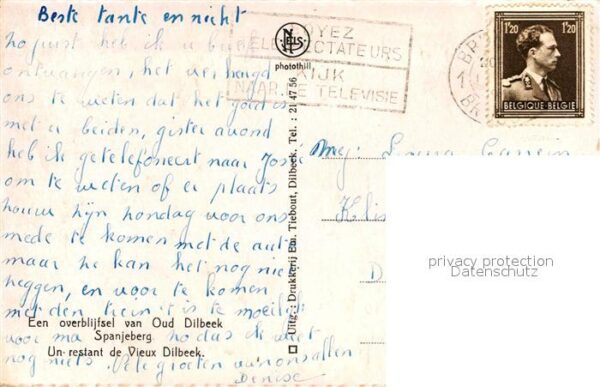 Beste tante en nicht
zojuist heb ik u brief
ontvangen, het verheugd
ons te weten dat het goed is
met u beiden, gister avond
heb ik getelefoneert naar José
om te weten of er plaats
zijn zondag voor ons
mede te komen met de auto
maar he kan het nog niet
zeggen, en voor te komen
met den trein 't is te moeilijk
voor ma zo dus ik weet
nog niets. Vele groeten van ons allen
Denise
Een overblijfsel van Oud Dilbeek
Spanjeberg.
Un restant de Vieux Dilbeek.
NELS
photothill
Uitg.: Drukkerij Em. Tiebout, Dilbeek, Tel.: 21 47 56
SOYEZ
TELESPECTATEURS
KIJK
NAAR DE TELEVISIE
1'20 1'20
BELGIQUE BELGIE
Mej. Louisa
privacy protection
Datenschutz